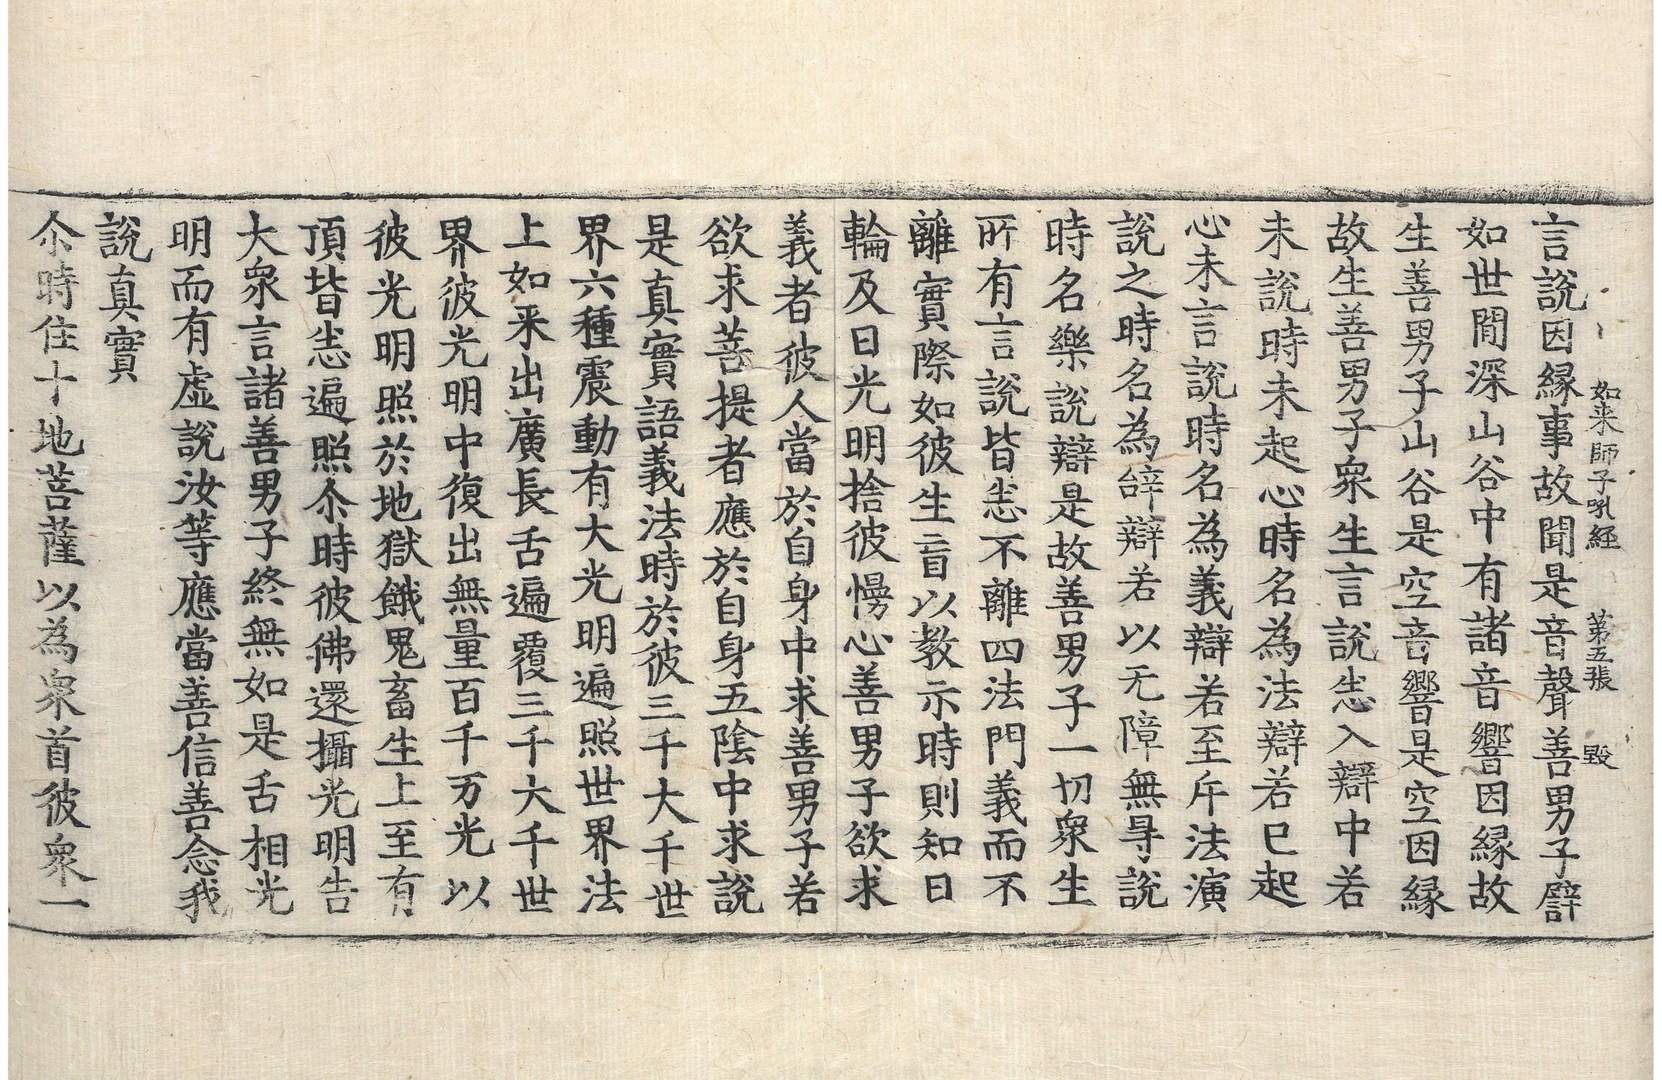 如来師子吼経　第五張　毀
言説因緣事故聞是音聲善男子譬
如世間深山谷中有諸音響因緣故
生善男子山谷是空音響是空因緣
故生善男子衆生言説悉入辯中若
未説時未起心時名為法辯若已起
心未言説時名為義辯若至斤法演
説之時名為辝辯若以无障無㝵説
時名樂説辯是故善男子一切衆生
所有言説皆悉不離四法門義而不
離實際如彼生盲以教示時則知日
輪及日光明捨彼慢心善男子欲求
義者彼人當於自身中求善男子若
欲求菩提者應於自身五陰中求説
是真實語義法時於彼三千大千世
界六種震動有大光明遍照世界法
上如来出廣長舌遍覆三千大千世
界彼光明中復出無量百千万光以
彼光明照於地獄餓鬼畜生上至有
頂皆悉遍照尒時彼佛還攝光明告
大衆言諸善男子終無如是舌相光
明而有虚説汝等應當善信善念我
説真實
尒時住十地菩薩以為衆首彼衆一